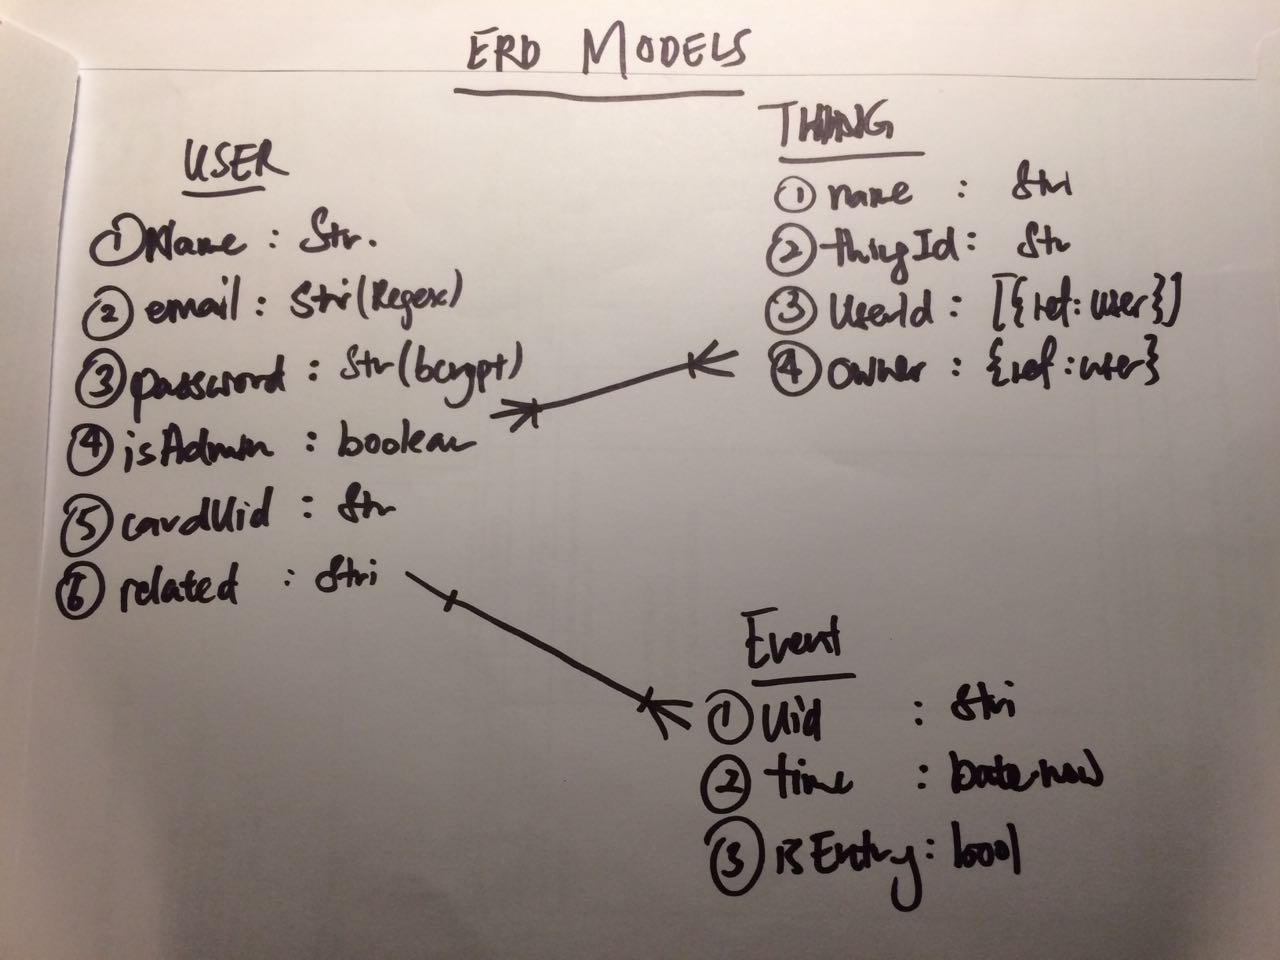 ERD MODELS
USER
① Name : Str.
② email : Stri (Regex)
③ password : Str (bcrypt)
④ isAdmin : boolean
⑤ cardUid : Str
⑥ related : Stri
THING
① name : Stri
② thingId : Str
③ UserId : [{ref: user}]
④ owner : {ref: user}
Event
① Uid : Stri
② time : Date now
③ isEntry : bool